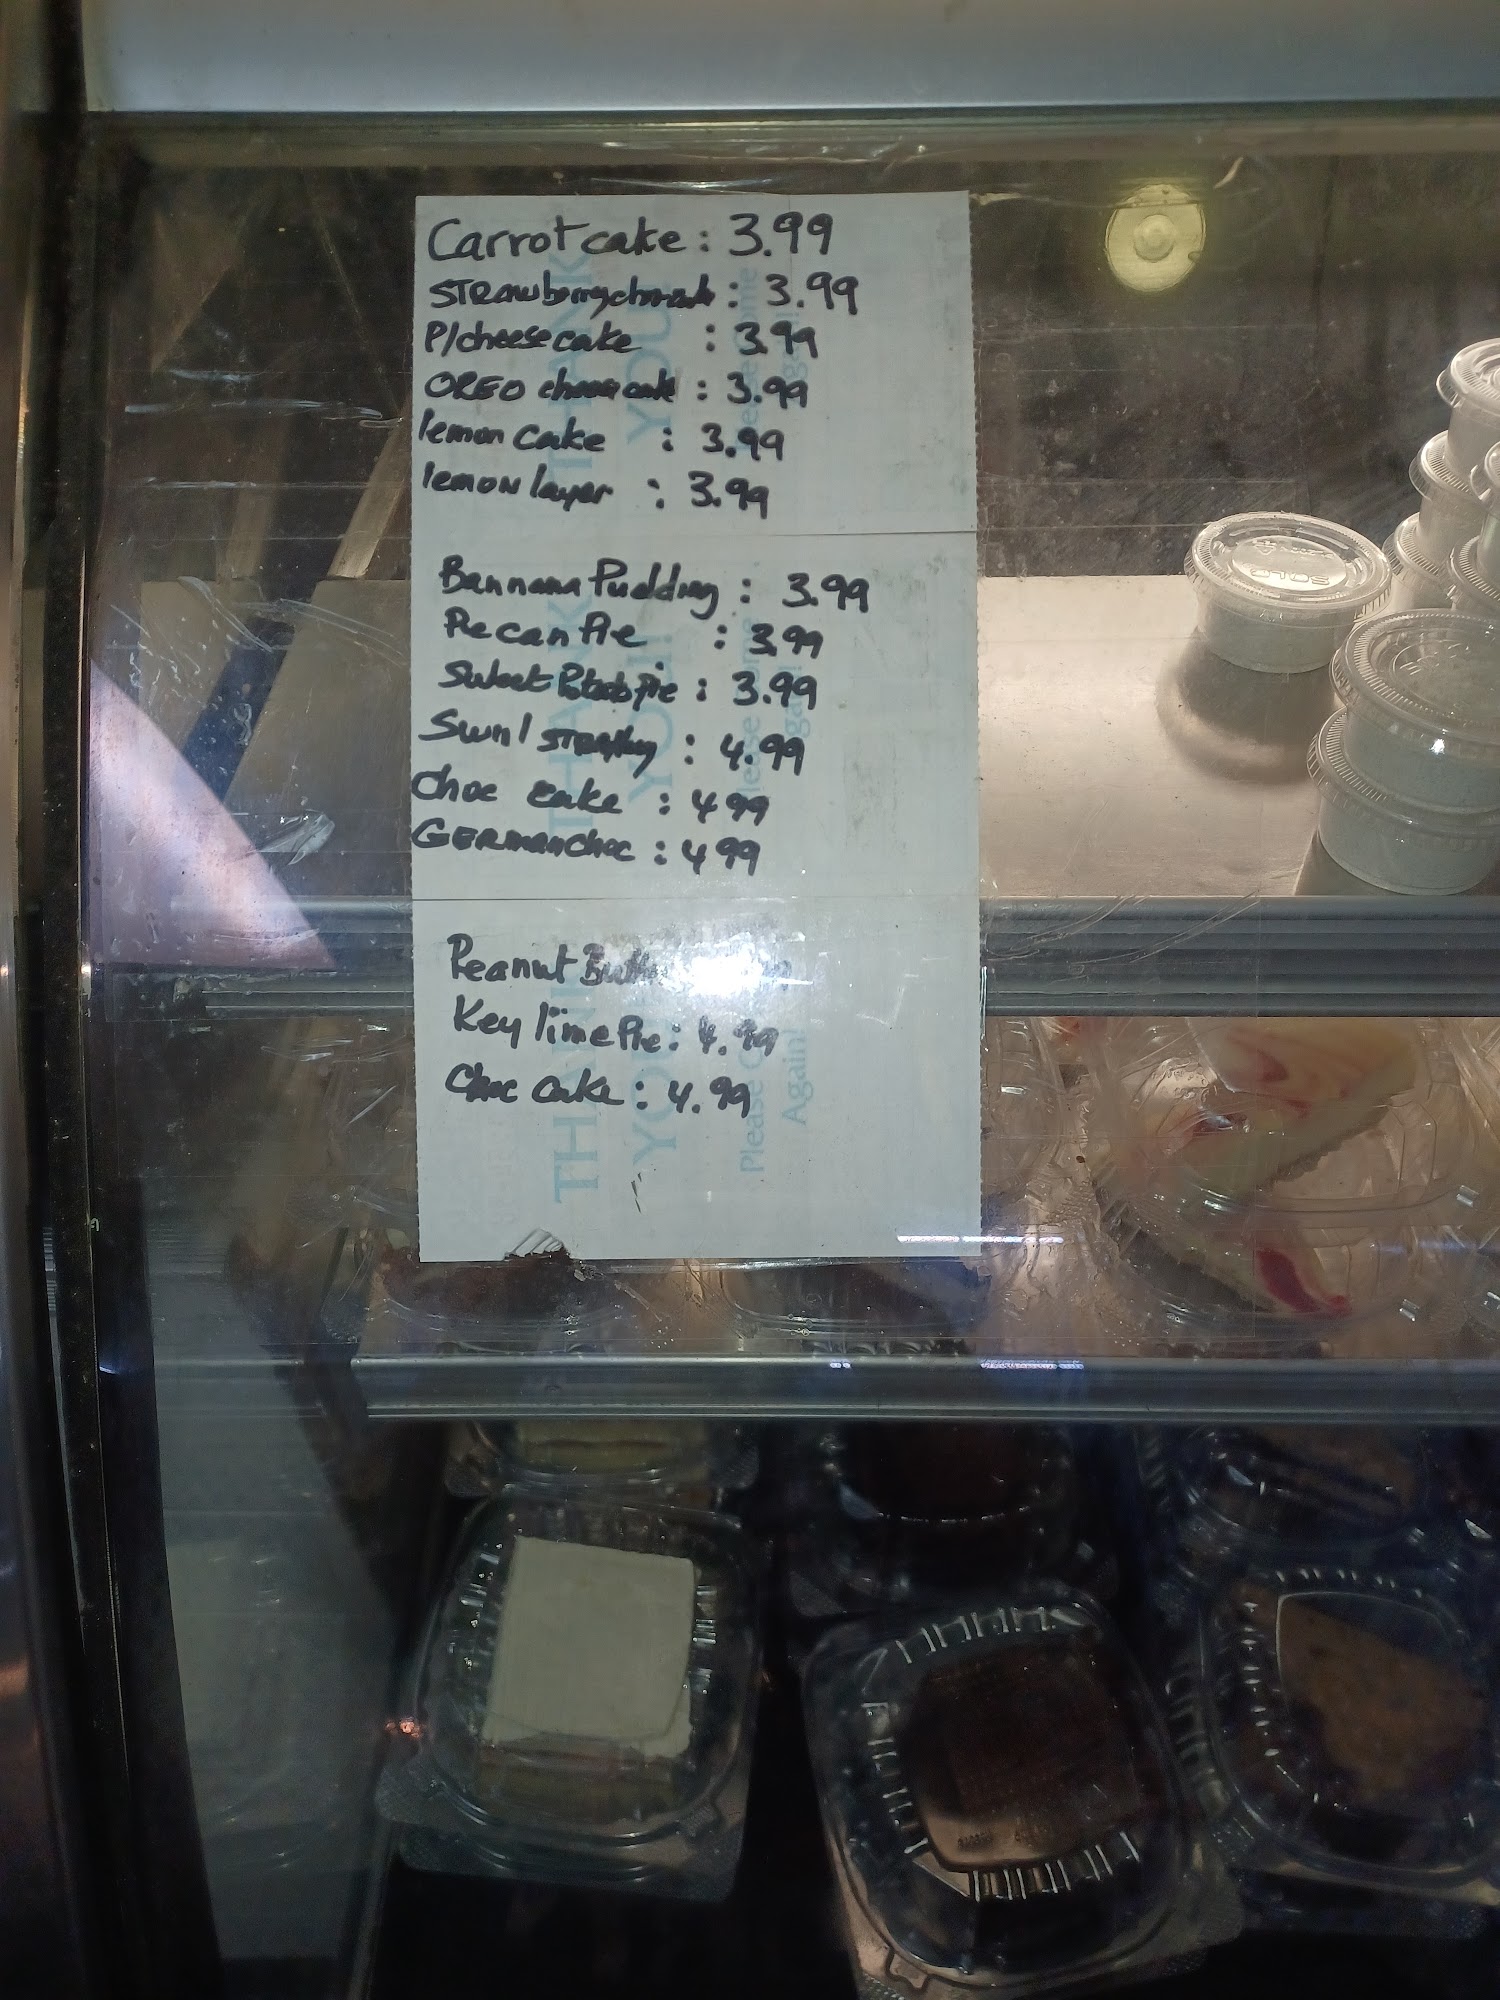 Carrot cake : 3.99
: 3.99
P/cheese cake : 3.99
OREO cheese cake : 3.99
lemon cake : 3.99
lemon layer : 3.99
Bannana Pudding : 3.99
Pecan Pie : 3.99
Sweet Potato pie : 3.99
: 4.99
Choc cake : 4 99
GERMAN Choc : 4 99
Peanut
Key lime Pie : 4.99
Choc cake : 4.99
THANK
YOU!
Please Come
Again!
SOLO